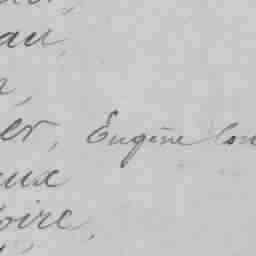 au
er, Eugène Con
eux
oire,